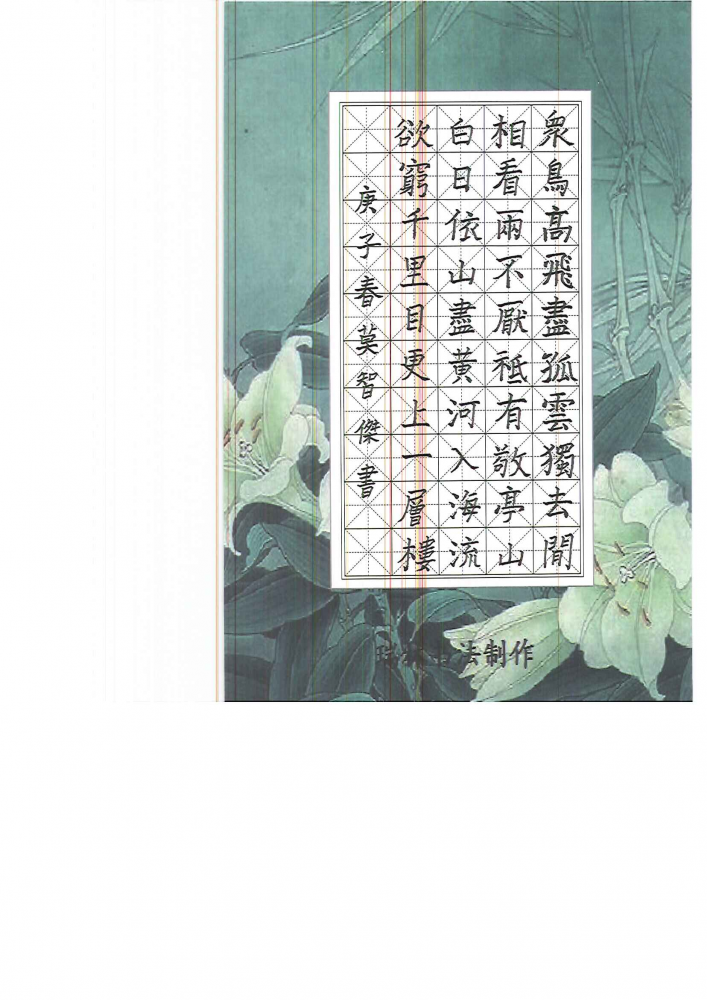 衆鳥高飛盡孤雲獨去閒
相看兩不厭祗有敬亭山
白日依山盡黃河入海流
欲窮千里目更上一層樓
庚子春莫智傑書
法制作